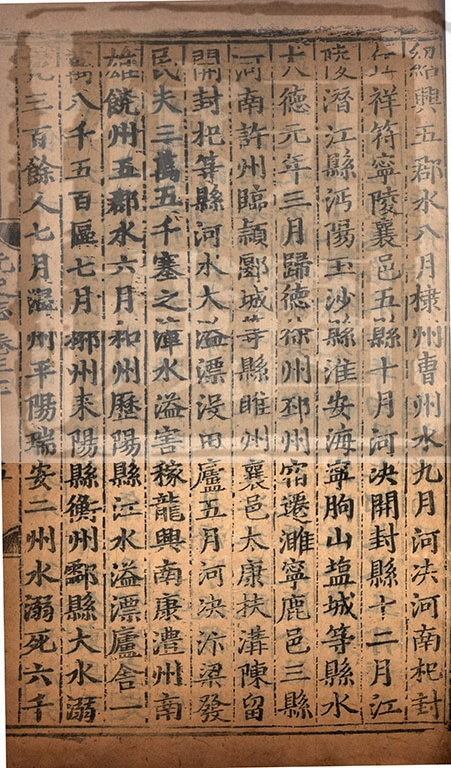 紹興五郡水八月棣州曹州水九月河决河南杞封
丘祥符寧陵襄邑五縣十月河决開封縣十二月江
陵潛江縣沔陽玉沙縣淮安海寧朐山塩城等縣水
大德元年三月歸德徐州邳州宿遷睢寧鹿邑三縣
河南許州臨潁郾城等縣睢州襄邑太康扶溝陳留
開封杞等縣河水大溢漂没田廬五月河决汴梁發
民夫三萬五千塞之漳水溢害稼龍興南康澧州南
雄饒州五郡水六月和州歷陽縣江水溢漂廬舍一
萬八千五百區七月郴州耒陽縣衡州酃縣大水溺
死三百餘人七月温州平陽瑞安二州水溺死六千